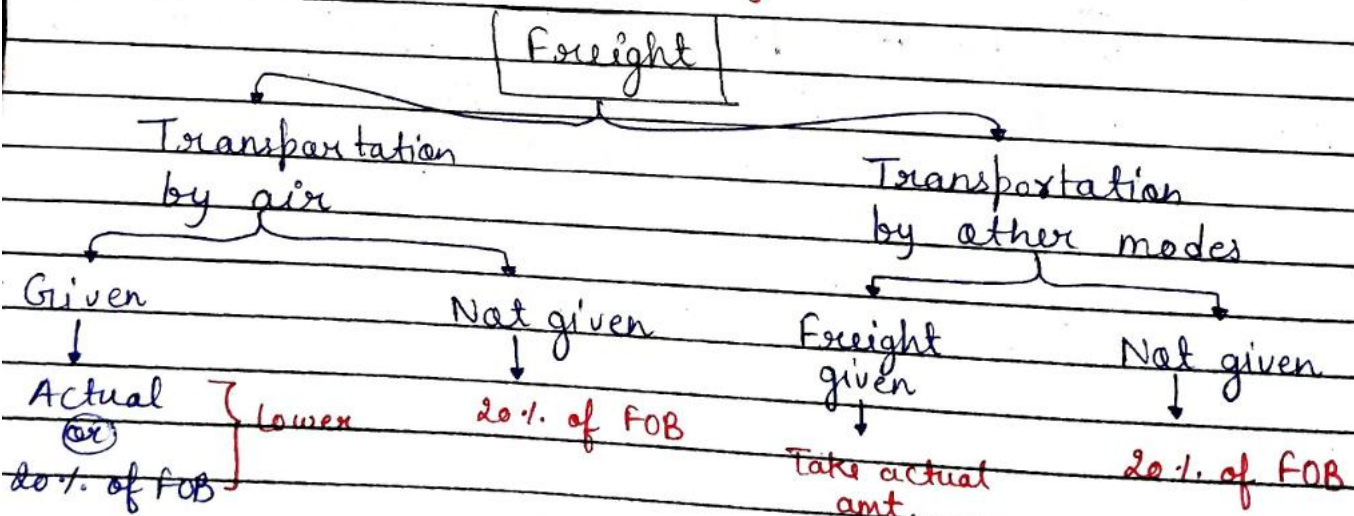 Freight
Transportation
by air
Transportation
by other modes
Given
Not given
Freight
given
Not given
Actual
or
20% of FOB
Lower
20% of FOB
Take actual
amt.
20% of FOB